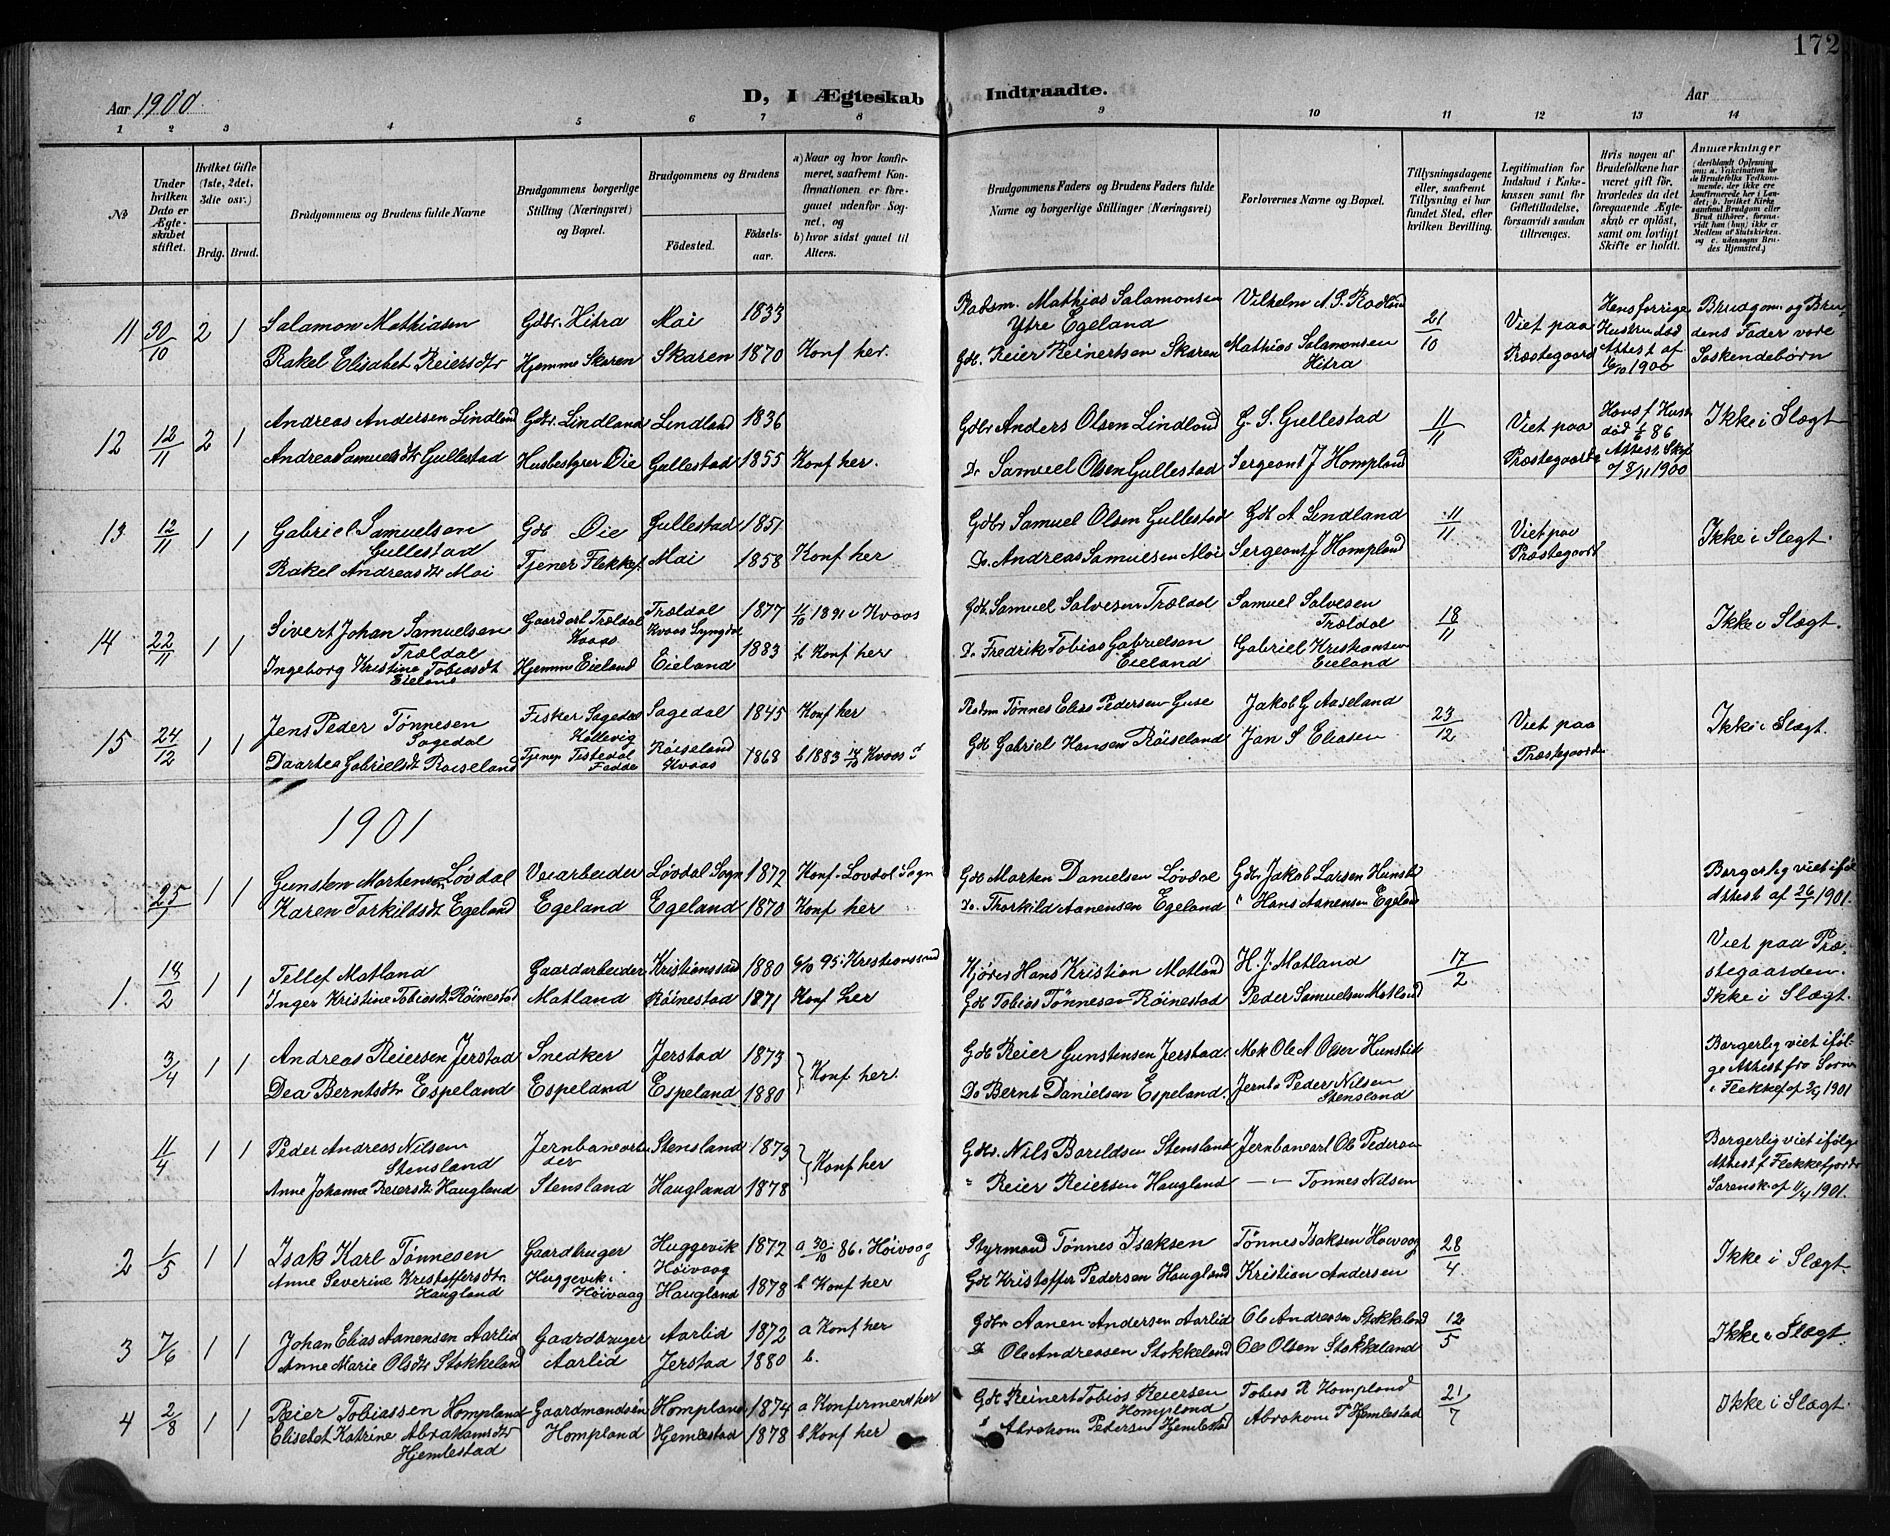 172
Aar 1900.
D, I Ægteskab Indtraadte.
Aar
1 2 3 4 5 6 7 8 9 10 11 12 13 14
No
Under hvilken Dato er Ægteskabet stiftet.
Hvilket Gifte (1ste, 2det, 3die osv.)
Brdg. Brud.
Brudgommens og Brudens fulde Navne
Brudgommens borgerlige Stilling (Næringsvei) og Bopæl.
Brudgommens og Brudens
Födested.
Födselsaar.
a) Naar og hvor konfirmeret, saafremt Konfirmationen er foregaaet udenfor Sognet, og
b) hvor sidst gaaet til Alters.
Brudgommens Faders og Brudens Faders fulde Navne og borgerlige Stillinger (Næringsvei)
Forlovernes Navne og Bopæl.
Tillysningsdagene eller, saafremt Tillysning ei har fundet Sted, efter hvilken Bevilling.
Legitimation for Indskud i Enkekassen samt for Giftetilladelse, forsaavidt saadan tiltrænges.
Hvis nogen af Brudefolkene har været gift för, hvorledes da det foregaaende Ægteskab er oplöst, samt om lovligt Skifte er holdt.
Anmærkninger
11 30/10 2 1 Salamon Mathiasen Gdbr. Hitra Moi 1833 Pladsm. Mathias Salamonsen Ytre Egeland Vilhelm A. P. Rodland 21/10 Viet paa Præstegaard Hans forrige Hustru død Attest af 16/10 1900 Brudgom. og Brudens Fader vore Søskendebørn
Rakel Elisabet Reiersdtr Hjemme Skaren Skaren 1870 Konf her. Gdb. Reier Reinertsen Skaren Mathias Salamonsen Hitra
12 12/11 2 1 Andreas Andersen Lindland Gdbr. Lindland Lindland 1836 Gdbr Anders Olsen Lindland G. S. Gullestad 11/11 Viet paa Præstegaarden Hans f. Hustr død 86 Attest 8/11 1900 Ikke i Slægt
Andrea Samuelsdtr Gullestad Husbestyrer Øie Gullestad 1855 Konf her. Do Samuel Olsen Gullestad Sergeant J Hompland
13 12/11 1 1 Gabriel Samuelsen Gullestad Gdb Øie Gullestad 1851 Gdbr Samuel Olsen Gullestad Gdb A. Lindland 11/11 Viet paa Præstegaard Ikke i Slegt.
Rakel Andreasdtr Moi Tjener Flekkef. Moi 1858 Konf her Do. Andreas Samuelsen Moi Sergeant J Hompland
14 22/11 1 1 Sivert Johan Samuelsen Trældal Gaardarb Trældal Kvaas Trældal Kvaas Lyngdal 1877 11/10 1891 i Kvaas Gdb. Samuel Salvesen Trældal Samuel Salvesen Trældal 18/11 Ikke i Slægt.
Ingeborg Kristine Tobiasdt Eieland Hjemme Eieland Eieland 1883 b Konf her Do Fredrik Tobias Gabrielsen Eieland Gabriel Kristiansen Eieland
15 24/12 1 1 Jens Peder Tønnesen Sagedal Fisker Sagedal Sagedal 1845 Konf her Tønnes Elias Pedersen Guse Jakob G Aaseland 23/12 Viet paa Præstegaarden Ikke i Slægt.
Daartea Gabrielsdt Røiseland Tjener Tistedal Fedde Røiseland Kvaas 1868 b 1883 14/10 Kvaas Gdb Gabriel Hansen Røiseland Jan S Eliasen
1901
25/1 1 1 Gunsten Mortensen Løvdal Veiarbeider Løvdal Sogn 1872 Konf. Løvdal Sogn Gdb Morten Danielsen Løvdal Gdbr Jakob Larsen Hunsb Borgerlig viet iføl Attest af 26/1 1901.
Karen Torkildsdt Egeland Egeland Egeland 1870 Konf her Do. Thorkild Aanensen Egeland " Hans Aanensen Egeland
1. 18/2 1 1 Tellef Matland Gaardarbeider Kristianssand 1880 6/10 95 i Kristianssand Kjører Hans Kristian Matland H. J. Matland 17/2 Viet paa Præstegaarden. Ikke i Slægt.
Inger Kristine Tobiasdt Røinestad Matland Røinestad 1871 Konf her Gdb Tobias Tønnesen Røinestad Peder Samuelsen Matland
3/4 1 1 Andreas Reiersen Jerstad Snedker Jerstad 1873 Konf her. Gdb Reier Gunstensen Jerstad. Mek Ole A Olsen Hunsbed Borgerlig viet ifølge Attest fra Soren i Flekkef af 3/4 1901
Dea Berntsdtr Espeland Espeland Espeland 1880 Do Bernt Danielsen Espeland. Jernba Peder Nilsen Stensland
11/4 1 1 Peder Andreas Nilsen Stensland Jernbanearbeider Stensland 1873 Konf her Gdbr. Nils Bareldsen Stensland Jernbanearb Ole Pedersen Borgerlig viet ifølge Attest f Flekkefjord Sorensk. af 11/4 1901.
Anne Johanne Reiersdt Haugland Stensland Haugland 1878 " Reier Reiersen Haugland — " — Tønnes Nilsen
2 1/5 1 1 Isak Karl Tønnesen Gaardbruger Huggevik Høivaag 1872 a 30/10 86 i Høivaag Styrmand Tønnes Isaksen Tønnes Isaksen Høivaag 28/4 Ikke i Slægt.
Anne Severine Kristoffersdtr Haugland Huggevik i Høivaag Haugland 1878 b Konf her Gdb Kristoffer Pedersen Haugland Kristian Andersen
3 7/6 1 1 Johan Elias Aanensen Aarlid Gaardbruger Aarlid 1872 a Konf her Gdbr Aanen Andersen Aarlid Ole Andreasen Stokkeland 12/5 Ikke i Slægt.
Anne Marie Olsdtr Stokkeland Aarlid Jerstad 1880 b. Do Ole Andreasen Stokkeland Ole Olsen Stokkeland
4 2/8 1 1 Reier Tobiassen Hompland Gaardmandsøn Hompland 1874 a Konfirmert her Gdb Reinert Tobias Reiersen Hompland Tobias R Hompland 21/7 Ikke i Slægt.
Elisebet Katrine Abrahamsdtr Hjemlestad Hompland Hjemlestad 1878 b Konf her Abraham Pedersen Hjemlestad Abraham P Hjemlestad